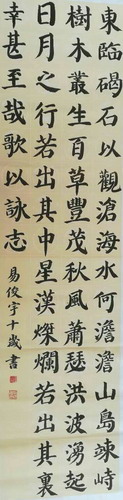 東臨碣石以觀滄海水何澹澹山島竦峙
樹木叢生百草豐茂秋風蕭瑟洪波湧起
日月之行若出其中星漢燦爛若出其裏
幸甚至哉歌以詠志
易俊宇十歲書